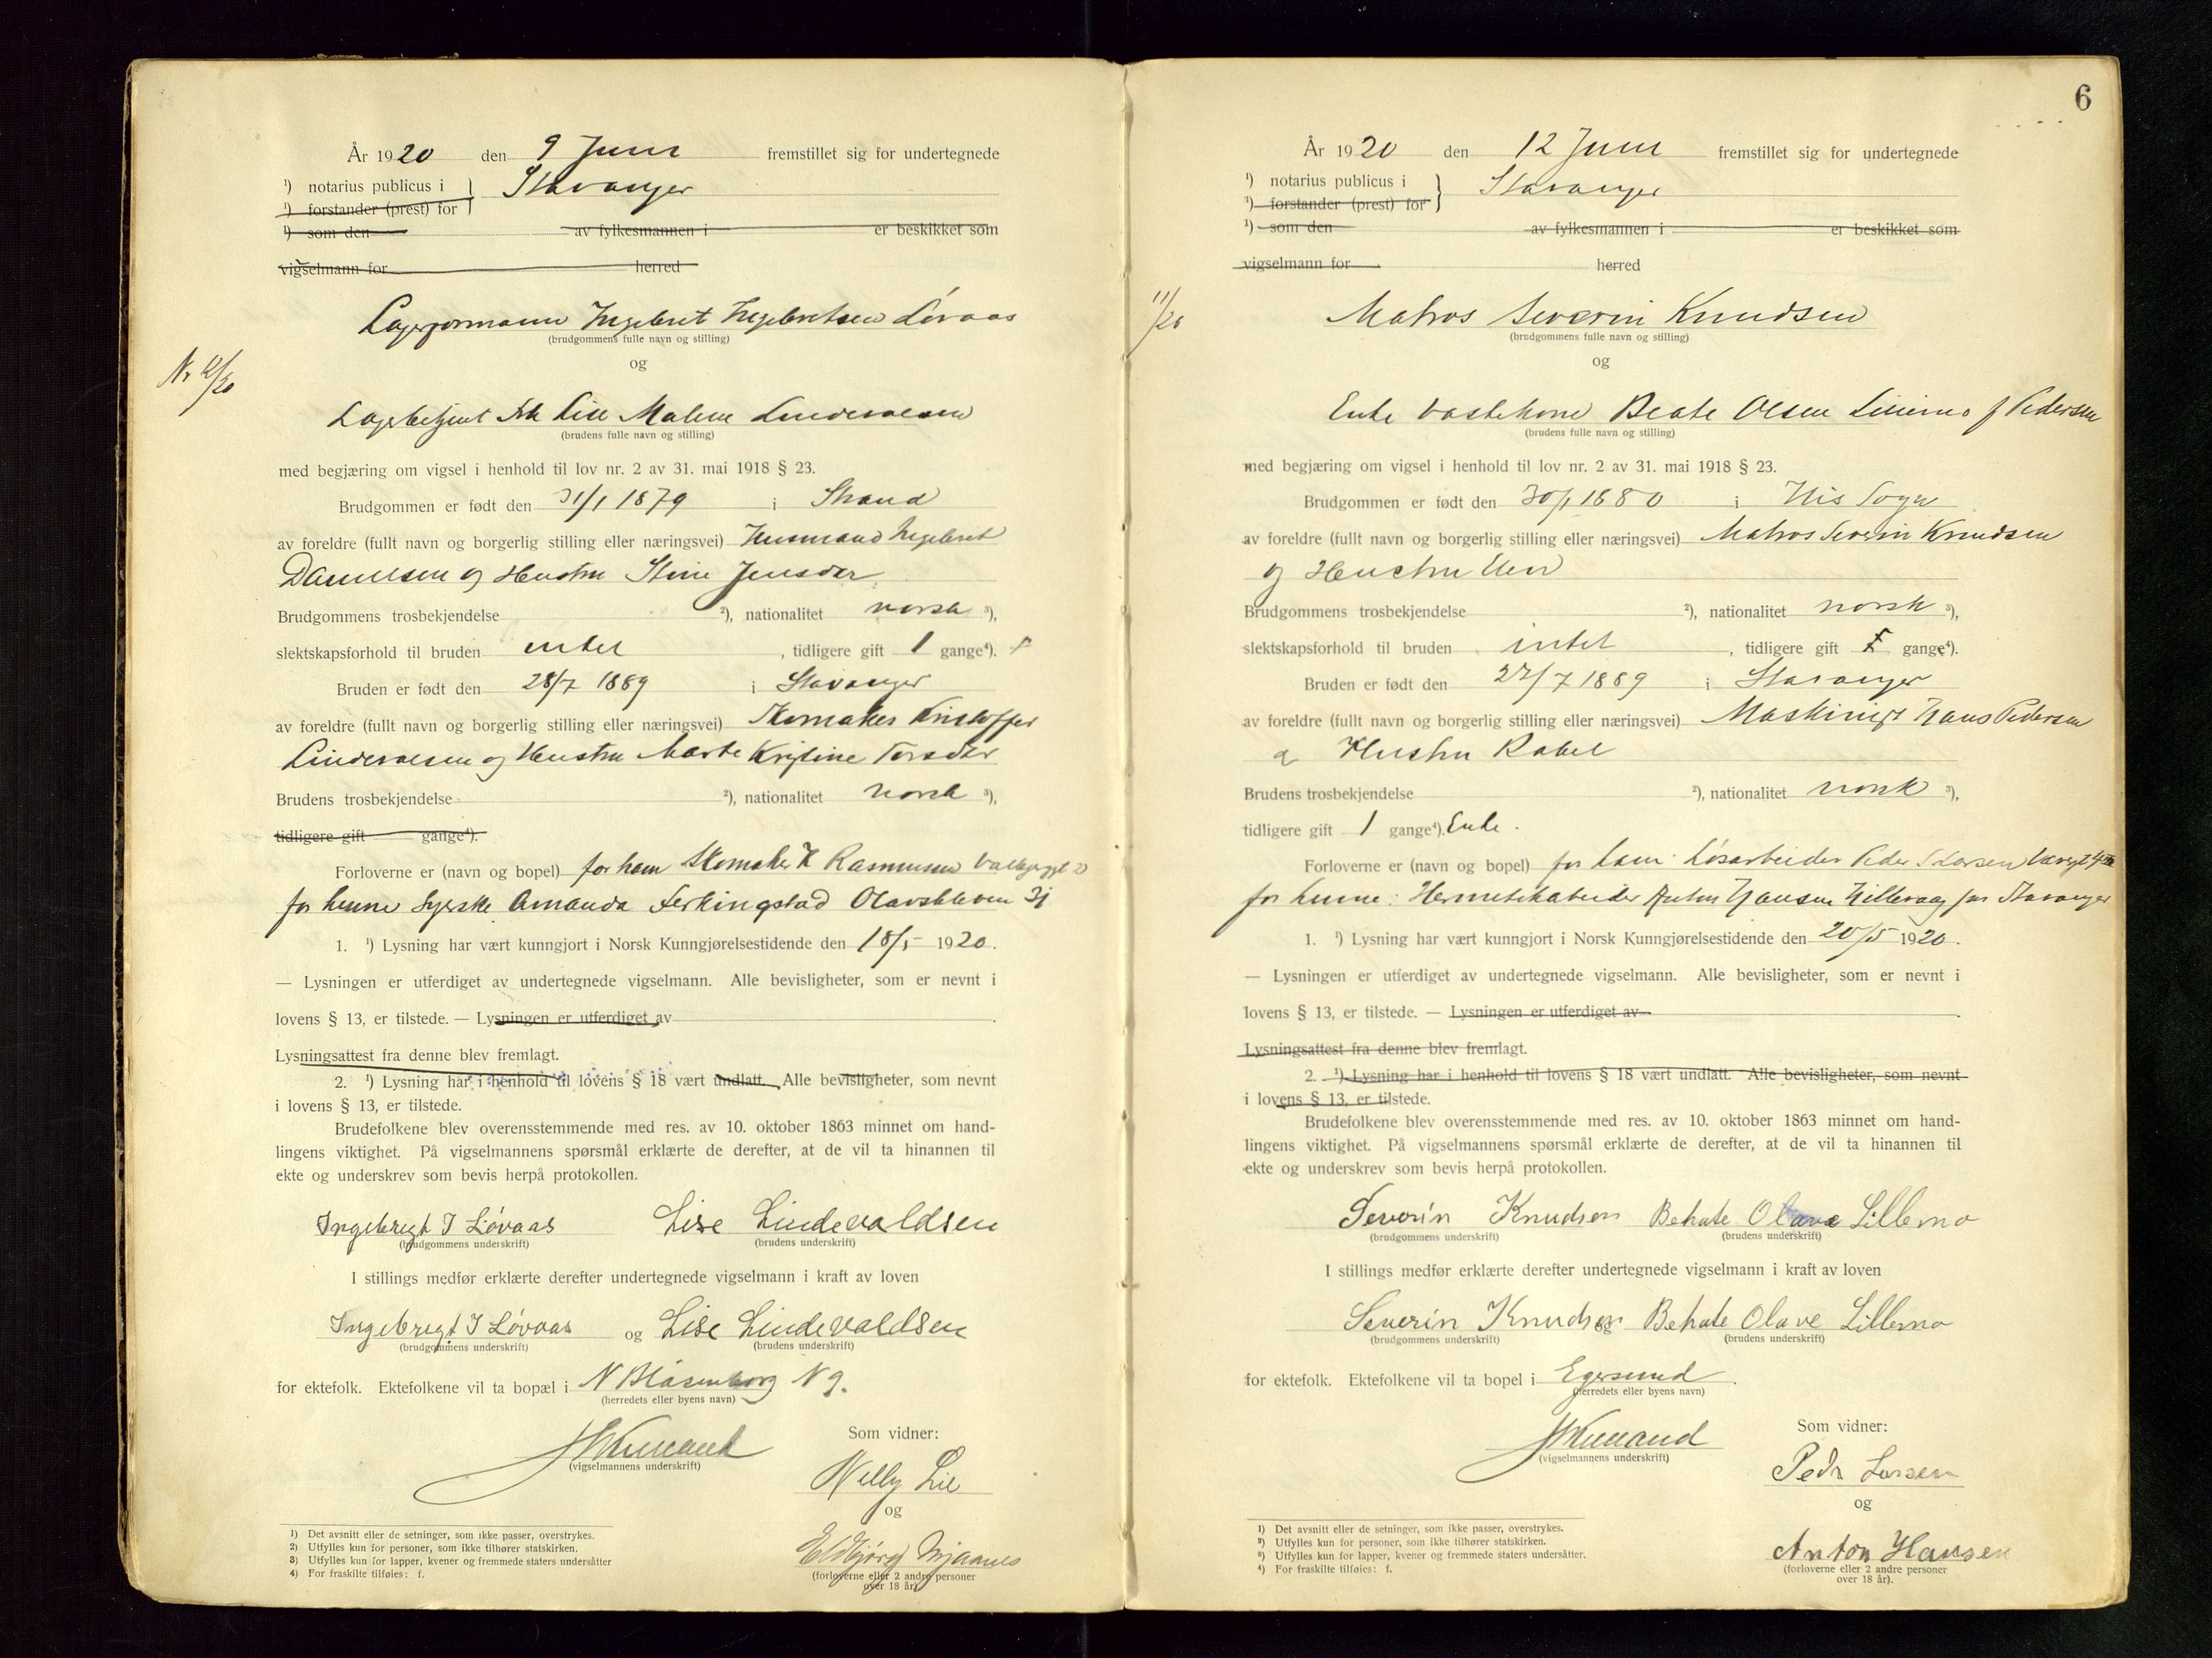 År 1920 den 9 Juni fremstillet sig for undertegnede
¹) notarius publicus i } Stavanger
¹) forstander (prest) for
¹) som den av fylkesmannen i er beskikket som
vigselmann for herred
Lagerformann Ingebret Ingebretsen Lövaas
(brudgommens fulle navn og stilling)
og
Nr 12/20
Lagerbetjent Frk Lise Malene Lindevalsen
(brudens fulle navn og stilling)
med begjæring om vigsel i henhold til lov nr. 2 av 31. mai 1918 § 23.
Brudgommen er født den 31/1 1879 i Strand
av foreldre (fullt navn og borgerlig stilling eller næringsvei) Husmand Ingebret
Danielsen og Hustru Stine Jensdtr
Brudgommens trosbekjendelse ²), nationalitet norsk ³),
slektskapsforhold til bruden intet , tidligere gift 1 gange⁴). f
Bruden er født den 28/7 1889 i Stavanger
av foreldre (fullt navn og borgerlig stilling eller næringsvei) Skomaker Kristoffer
Lindevalsen og Hustru Marte Kristine Torsdtr
Brudens trosbekjendelse ²), nationalitet norsk ³),
tidligere gift gange⁴).
Forloverne er (navn og bopel) for ham Skomaker K Rasmussen
for henne Syerske Amanda Ferkingstad Olavskleven 31
1. ¹) Lysning har vært kunngjort i Norsk Kunngjørelsestidende den 18/5 1920.
— Lysningen er utferdiget av undertegnede vigselmann. Alle bevisligheter, som er nevnt i
lovens § 13, er tilstede. — Lysningen er utferdiget av .
Lysningsattest fra denne blev fremlagt.
2. ¹) Lysning har i henhold til lovens § 18 vært undlatt. Alle bevisligheter, som nevnt
i lovens § 13, er tilstede.
Brudefolkene blev overensstemmende med res. av 10. oktober 1863 minnet om hand-
lingens viktighet. På vigselmannens spørsmål erklærte de derefter, at de vil ta hinannen til
ekte og underskrev som bevis herpå protokollen.
Ingebregt I Lövaas Lise Lindevaldsen
(brudgommens underskrift) (brudens underskrift)
I stillings medfør erklærte derefter undertegnede vigselmann i kraft av loven
Ingebregt I Lövaas og Lise Lindevaldsen
(brudgommens underskrift) (brudens underskrift)
for ektefolk. Ektefolkene vil ta bopæl i N Blåsenborg N 9.
(herredets eller byens navn)
Som vidner:
(vigselmannens underskrift)
Nelly Lie
og
Eldbjörg Mjaanes
(forloverne eller 2 andre personer
over 18 år).
1) Det avsnitt eller de setninger, som ikke passer, overstrykes.
2) Utfylles kun for personer, som ikke tilhører statskirken.
3) Utfylles kun for lapper, kvener og fremmede staters undersåtter
4) For fraskilte tilføies: f.
6
År 1920 den 12 Juni fremstillet sig for undertegnede
¹) notarius publicus i } Stavanger
¹) forstander (prest) for
¹) som den av fylkesmannen i er beskikket som
vigselmann for herred
11/20
Matros Severin Knudsen
(brudgommens fulle navn og stilling)
og
Enke Vaskekone Beate Olsen Lillemo f Pedersen
(brudens fulle navn og stilling)
med begjæring om vigsel i henhold til lov nr. 2 av 31. mai 1918 § 23.
Brudgommen er født den 30/1 1880 i His Sogn
av foreldre (fullt navn og borgerlig stilling eller næringsvei) Matros Severin Knudsen
og Hustru Elen
Brudgommens trosbekjendelse ²), nationalitet norsk ³),
slektskapsforhold til bruden intet , tidligere gift gange⁴).
Bruden er født den 22/7 1889 i Stavanger
av foreldre (fullt navn og borgerlig stilling eller næringsvei) Maskinist Hans Pedersen
og Hustru Rakel
Brudens trosbekjendelse ²), nationalitet norsk ³),
tidligere gift 1 gange⁴). Enke.
Forloverne er (navn og bopel) for ham: Løsarbeider Peder Larsen
for henne: Hermetikarbeider Anton Hansen Hillevaag pr Stavanger
1. ¹) Lysning har vært kunngjort i Norsk Kunngjørelsestidende den 20/5 1920.
— Lysningen er utferdiget av undertegnede vigselmann. Alle bevisligheter, som er nevnt i
lovens § 13, er tilstede. — Lysningen er utferdiget av .
Lysningsattest fra denne blev fremlagt.
2. ¹) Lysning har i henhold til lovens § 18 vært undlatt. Alle bevisligheter, som nevnt
i lovens § 13, er tilstede.
Brudefolkene blev overensstemmende med res. av 10. oktober 1863 minnet om hand-
lingens viktighet. På vigselmannens spørsmål erklærte de derefter, at de vil ta hinannen til
ekte og underskrev som bevis herpå protokollen.
Severin Knudsen Behate Olava Lillemo
(brudgommens underskrift) (brudens underskrift)
I stillings medfør erklærte derefter undertegnede vigselmann i kraft av loven
Severin Knudsen og Behate Olave Lillemo
(brudgommens underskrift) (brudens underskrift)
for ektefolk. Ektefolkene vil ta bopel i Egersund .
(herredets eller byens navn)
Som vidner:
(vigselmannens underskrift)
Pedr Larsen
og
Anton Hansen
(forloverne eller 2 andre personer
over 18 år).
1) Det avsnitt eller de setninger, som ikke passer, overstrykes.
2) Utfylles kun for personer, som ikke tilhører statskirken.
3) Utfylles kun for lapper, kvener og fremmede staters undersåtter.
4) For fraskilte tilføies: f.